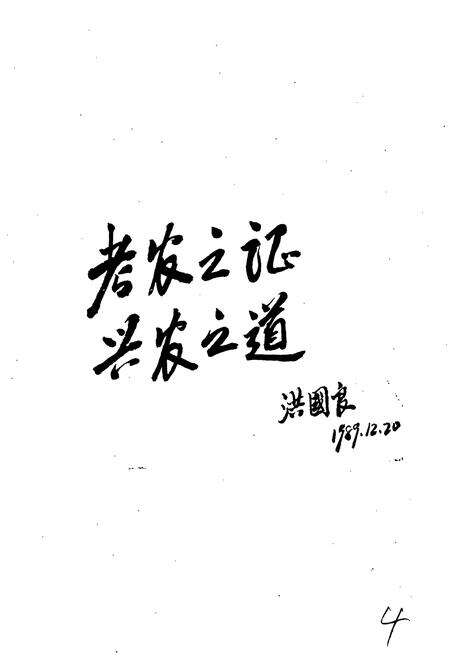 考农之证
兴农之道
洪國良
1989.12.20
4